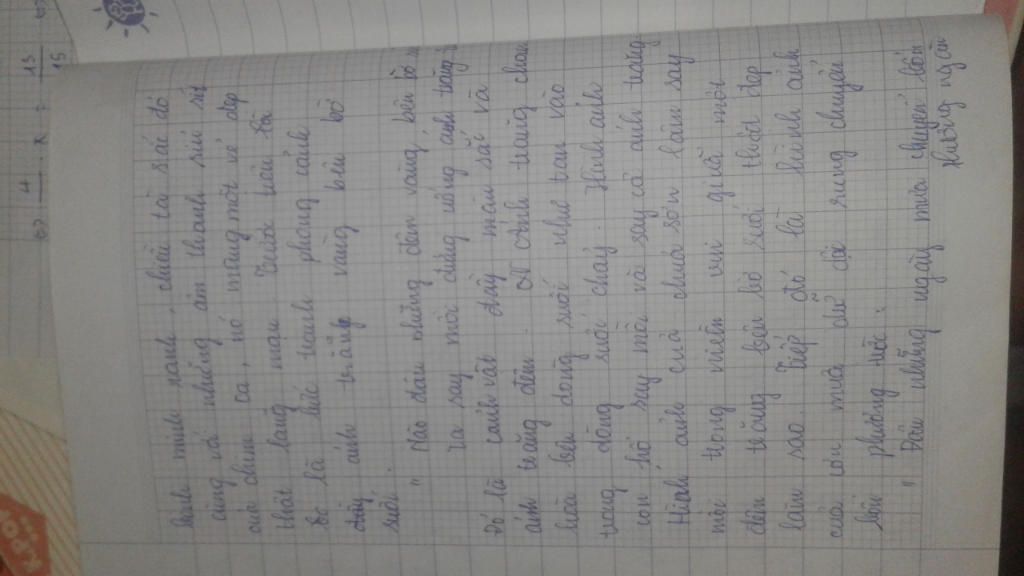 bình minh xanh, chiều tà sắc đỏ
cùng với những âm thanh rúi rít
của chim ca, nó mang một vẻ đẹp
thật lãng mạn. Trước tiên đã
đó là bức tranh phong cảnh
đầy ánh trăng vàng bên bờ
suối.
" Nào đâu những đêm vàng bên bờ suối
Ta say mồi đứng uống ánh trăng
Đó là cảnh vật đầy màu sắc và
ánh trăng đêm. Ánh trăng chan
hòa bên dòng suối như tan vào
trong dòng suối chảy. Hình ảnh
con hổ say mồi và say cả ánh trăng.
Hình ảnh của chúa sơn lâm say
mồi trong niềm vui giữa một
đêm trăng bên bờ suối thật đẹp
làm sao. Tiếp đó là hình ảnh
của cơn mưa dữ dội rung chuyển
bốn phương trời:
" Đâu những ngày mưa chuyển bốn
phương ngàn
13
15
4